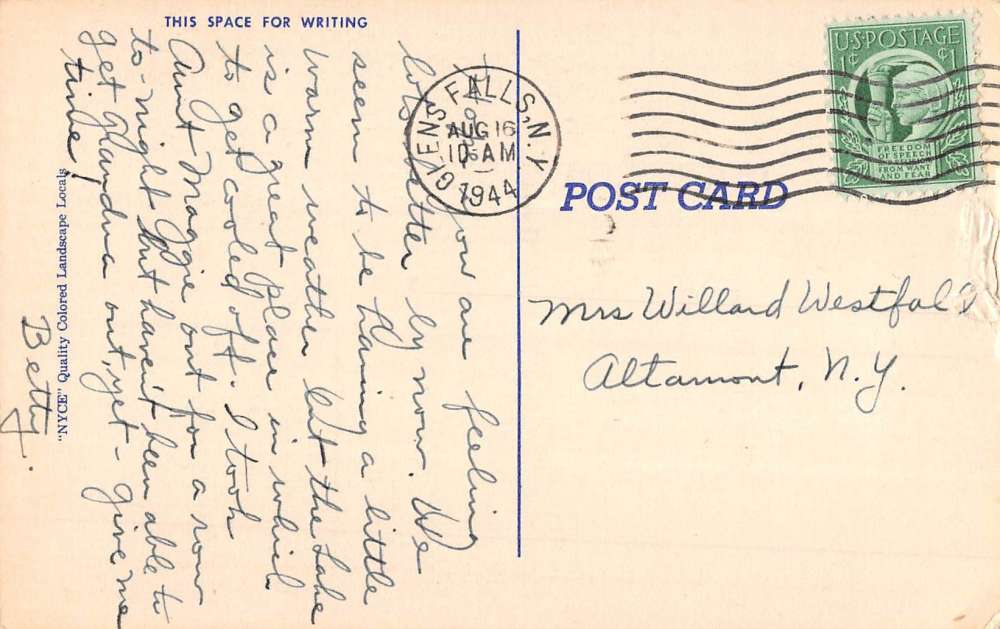 THIS SPACE FOR WRITING
Hope you are feeling
lots better by now. We
seem to be having a little
warm weather but the Lake
is a great place in which
to get cooled off. I took
Aunt Maggie out for a row
to-night but haven't been able to
get Grandma out, yet - give me
time!
Betty.
"NYCE" Quality Colored Landscape Locals
GLENS FALLS, N.Y.
AUG 16
10 AM
1944
U.S. POSTAGE
1¢ 1¢
FREEDOM
OF SPEECH
FROM WANT
AND FEAR
POST CARD
Mrs Willard Westfall
Altamont, N.Y.